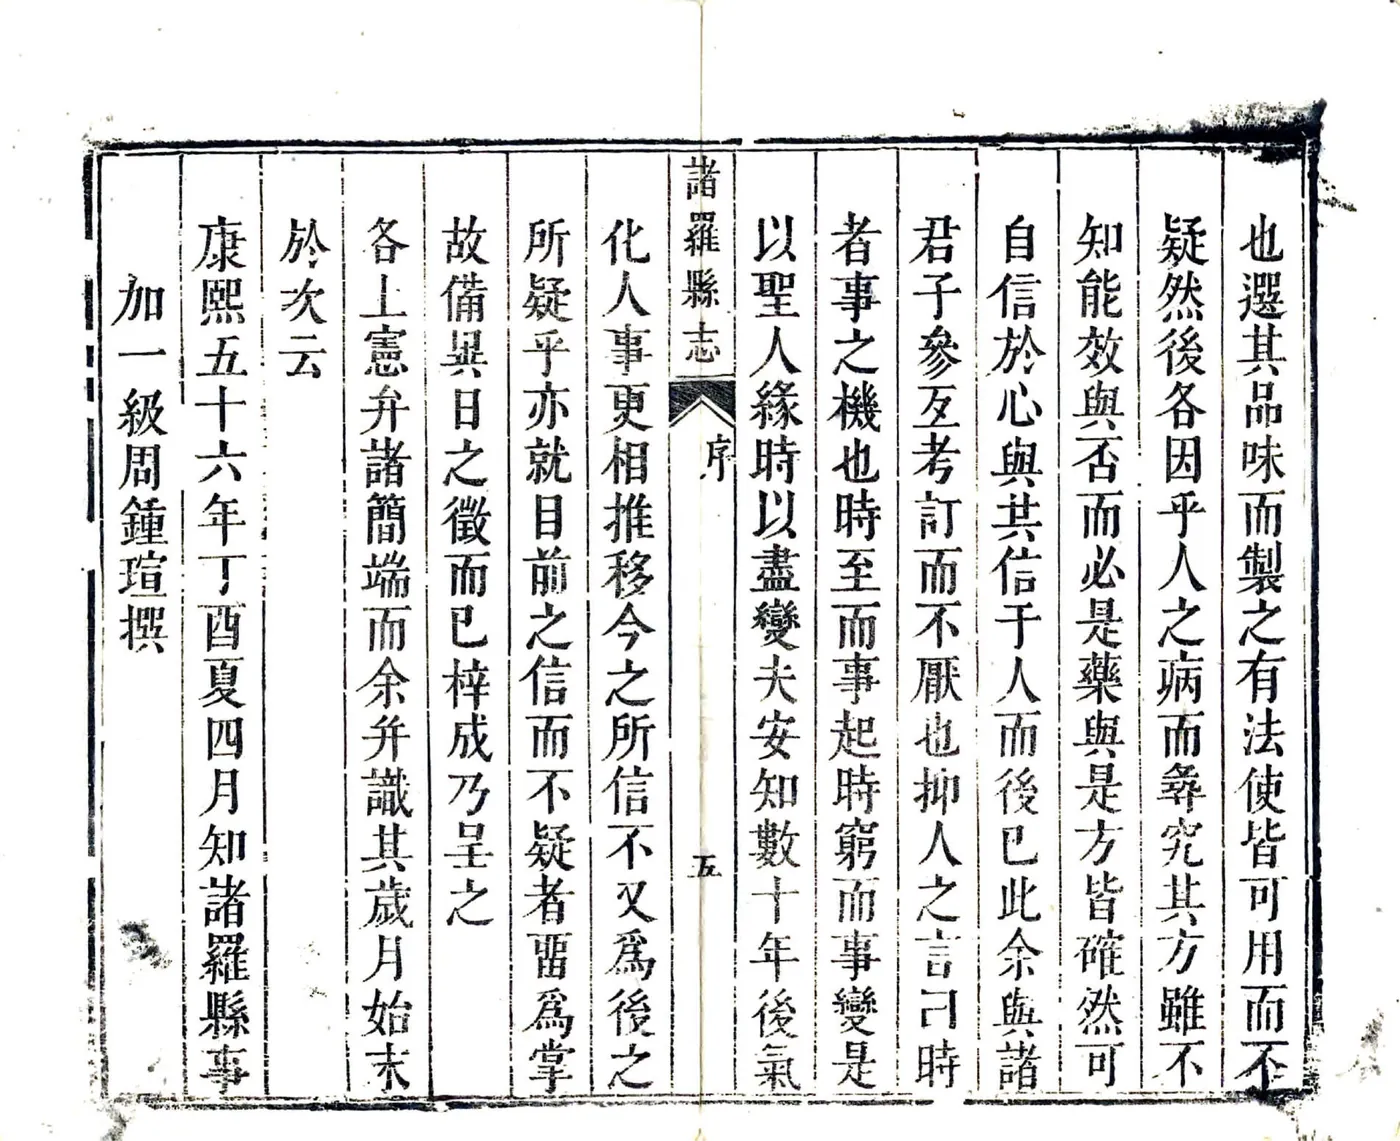 也選其品味而製之有法使皆可用而不
疑然後各因乎人之病而彝究其方雖不
知能效與否而必是藥與是方皆確然可
自信於心與其信于人而後已此余與諸
君子參互考訂而不厭也抑人之言曰時
者事之機也時至而事起時窮而事變是
以聖人緣時以盡變夫安知數十年後氣
諸羅縣志
序
五
化人事更相推移今之所信不又爲後之
所疑乎亦就目前之信而不疑者畱爲掌
故備異日之徵而已梓成乃呈之
各上憲弁諸簡端而余并識其歲月始末
於次云
康熙五十六年丁酉夏四月知諸羅縣事
加一級周鍾瑄撰